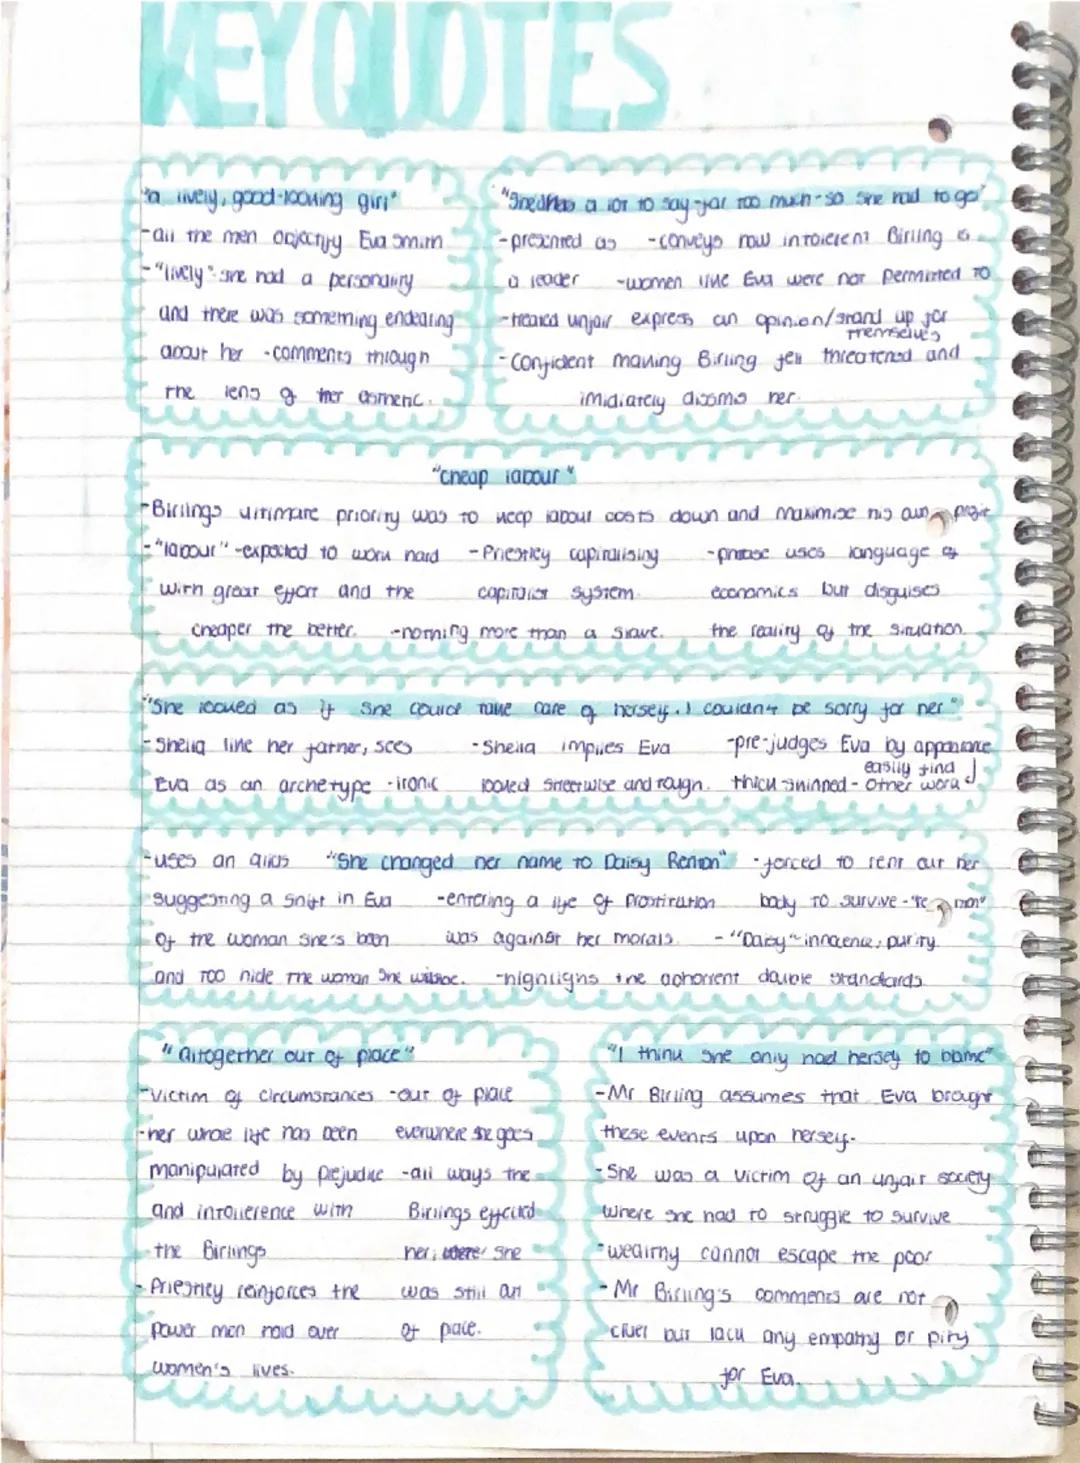 KEY QUOTES
"a lively, good-looking girl"
-all the men objectify Eva Smith
-"lively"- she had a personality
and there was something endearing
about her -comments through
the lens of her asthetic.
a lot to say-far too much-so she had to go"
-presented as -conveys how intolerent Birling is
a leader -women like Eva were not permitted to
-treated unfair express an opinion/stand up for
themselves
-Confident making Birling feel threatened and
imidiately dismiss her.
"cheap labour"
-Birlings ultimate priority was to keep labour costs down and maximise his own profit
-"labour"-expected to work hard -Priestley capitalising -phrase uses language of
with great effort and the capitalist system. economics but disguises
cheaper the better. -nothing more than a slave. the reality of the situation.
"She looked as if she could take care of herself. I couldn't be sorry for her"
-Sheila like her father, sees -Sheila implies Eva -pre-judges Eva by appearance
easily find
Eva as an archetype -ironic looked streetwise and rough. thick skinned- other work
-uses an alias "She changed her name to Daisy Renton" -forced to rent out her
suggesting a shift in Eva -entering a life of prostitution body to survive-
of the woman she's been was against her morals. -"Daisy"- innocence, purity.
and too hide the woman she -highlighs the abhorrent double standards
"altogether out of place"
-Victim of circumstances -out of place
-her whole life has been everwhere she goes
manipulated by prejudice -all ways the
and intollerence with Birlings effected
the Birlings her, she
-Priestley reinforces the was still an
power men hold over of place.
women's lives.
"I think she only had herself to blame"
-Mr Birling assumes that Eva brought
these events upon herself.
-She was a victim of an unfair society
where she had to struggle to survive
-wealthy cannot escape the poor
-Mr Birling's comments are not
cruel but lack any empathy or pity
for Eva.